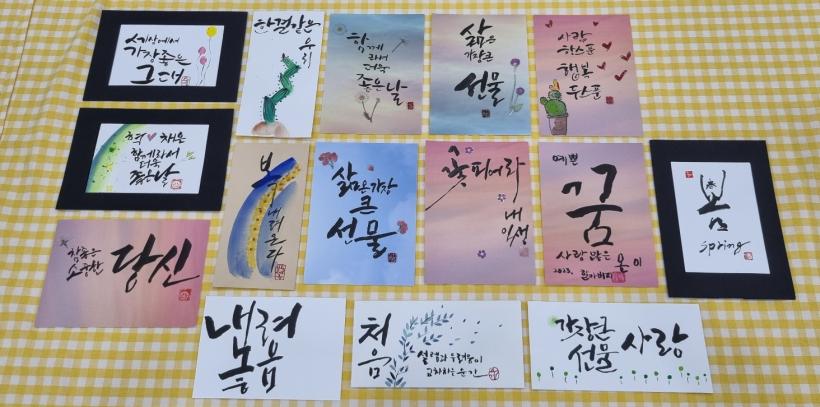 세상에서
가장좋은
그대
한결같은
우리
함께
해서
더욱
좋은날
삶은
가장큰
선물
사랑
한스푼
행복
두스푼
함께라서
더욱
좋은날
복
내려온다
삶은가장
큰
선물
꽃피어라
내
인생
예쁜
꿈
사랑 많은 온이
2023. 할아버지
봄
春
spring
참좋은
소중한
당신
내려
놓음
처음
설렘과 두려움이
교차하는 순간
가장큰
선물
사랑